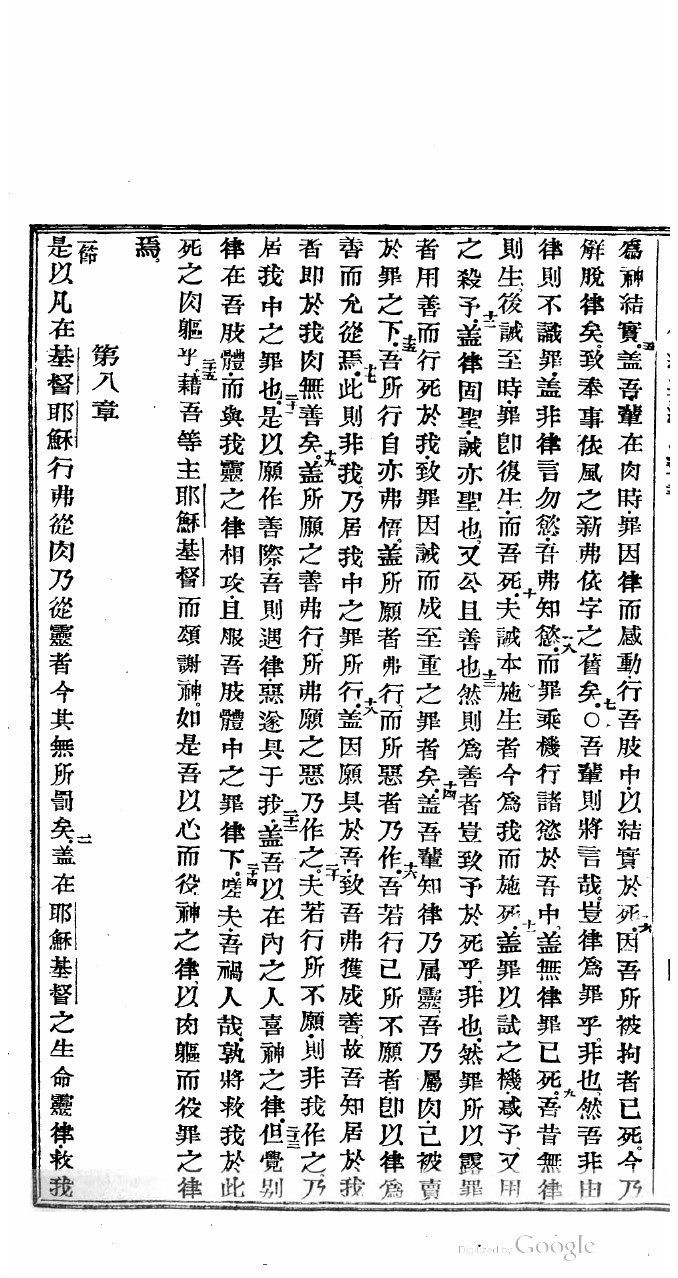 爲神結實。五蓋吾輩在肉時、罪因律而感動、行吾肢中、以結實於死。六因吾所被拘者已死。今乃
解脫律矣。致奉事依風之新弗依字之舊矣。七〇吾輩則將言哉。豈律爲罪乎。非也。然吾非由
律則不識罪。蓋非律言勿慾、吾弗知慾。八而罪乘機行諸慾於吾中。蓋無律罪已死。九吾昔無律
則生、後誡至時、罪卽復生、而吾死。十夫誡本施生者今爲我而施死。十一蓋罪以試之機、惑予、又用
之殺予。十二蓋律固聖、誡亦聖也、又公且善也。十三然則爲善者豈致予於死乎、非也、然罪所以露罪
者用善而行死於我、致罪因誡而成至重之罪者矣。十四蓋吾輩知律乃属靈、吾乃屬肉、已被賣
於罪之下。十五吾所行自亦弗悟。蓋所願者弗行、而所惡者乃作。十六吾若行已所不願者、卽以律爲
善而允從焉。十七此則非我、乃居我中之罪所行。十八蓋因願具於吾、致吾弗獲成善、故吾知居於我
者卽於我肉無善矣。十九蓋所願之善弗行、所弗願之惡乃作之。二十夫若行所不願、則非我作之、乃
居我中之罪也。二十一是以願作善際、吾則遇律惡遂具于我。二十二蓋吾以在內之人喜神之律。二十三但覺別
律在吾肢體、而與我靈之律相攻、且服吾肢體中之罪律下。二十四嗟夫、吾禍人哉、孰將救我於此
死之肉軀乎。二十五藉吾等主耶穌基督而頌謝神。如是吾以心而役神之律、以肉軀而役罪之律
焉。
第八章
一節是以凡在基督耶穌行弗從肉乃從靈者今其無所罰矣。二蓋在耶穌基督之生命靈律、救我
Digitized by Google